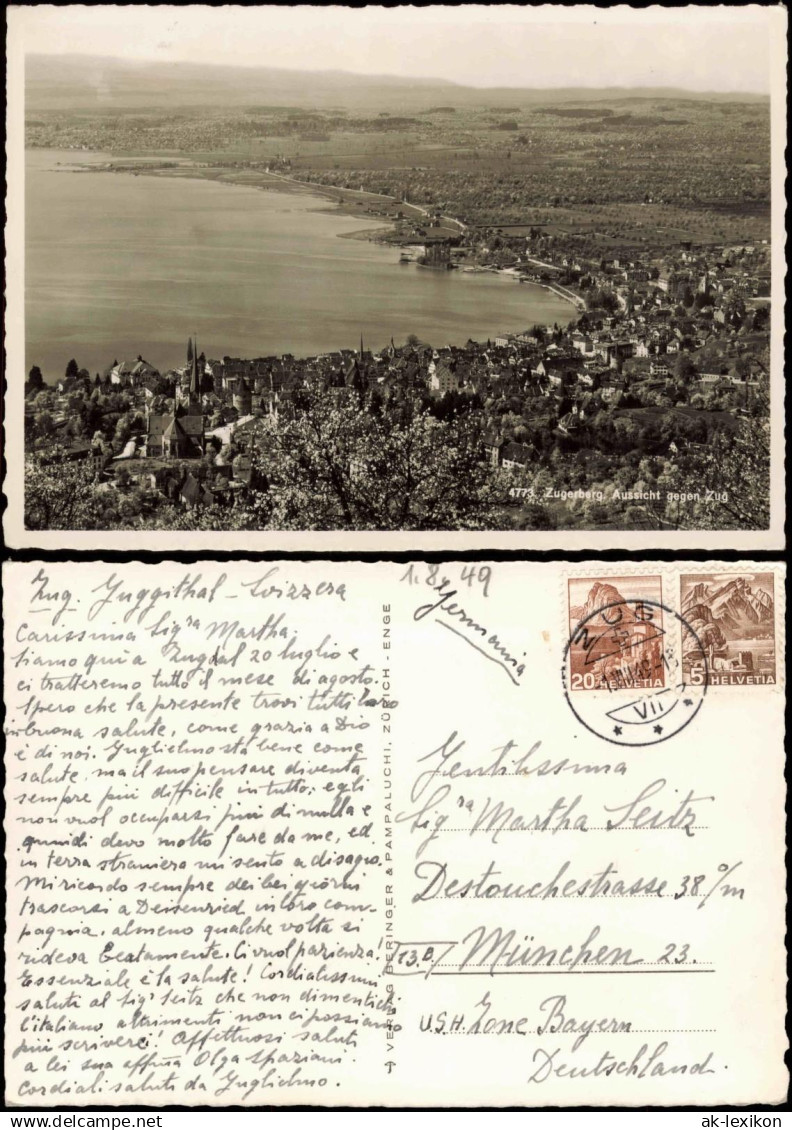 4773 Zugerberg. Aussicht gegen Zug
Zug. Guggithal - Svizzera
1.8.49
Germania
Carissima Sigra Martha,
siamo qui a Zug dal 20 luglio e
ci tratteremo tutto il mese di agosto.
Spero che la presente trovi tutti loro
in buona salute, come grazia a Dio
è di noi. Guglielmo sta bene come
salute, ma il suo pensare diventa
sempre più difficile in tutto; egli
non vuol occuparsi più di nulla e
quindi devo molto fare da me, ed
in terra straniera mi sento a disagio.
Mi ricordo sempre dei bei giorni
trascorsi a Deisenried in loro com-
pagnia, almeno qualche volta si
rideva beatamente. Ci vuol pazienza!
Essenziale è la salute! Cordialissimi
saluti al Sigr Seitz che non dimentichi
l'italiano altrimenti non ci possiamo
più scrivere! Affettuosi saluti
a lei sua affma Olga Spaziani.
Cordiali saluti da Guglielmo.
VERLAG BERINGER & PAMPALUCHI, ZÜRICH - ENGE
20 HELVETIA
5 HELVETIA
ZUG
VII
Gentilissima
Sigra Martha Seitz
Destouchestrasse 38 0/m
13.B München 23.
U.S.H. Zone Bayern
Deutschland.
ak-ansichtskarten.de